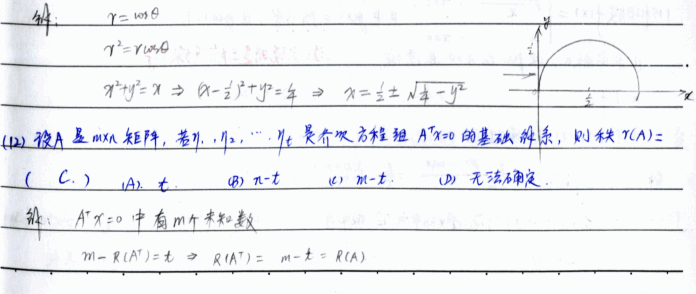 解: r = cosθ
r² = rcosθ
x²+y² = x ⇒ (x-½)²+y² = ¼ ⇒ x = ½ ± √(¼ - y²)
y
½
½
x
(12) 设A是m×n矩阵, 若η₁, η₂, … η_t 是齐次方程组 AᵀX=0 的基础解系, 则秩 r(A)=
( C. ) (A). t. (B) n-t (C) m-t. (D) 无法确定.
解: AᵀX=0 中有m个未知数
m - R(Aᵀ) = t ⇒ R(Aᵀ) = m-t = R(A)